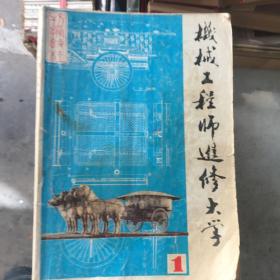 機械工程师進修大学
1